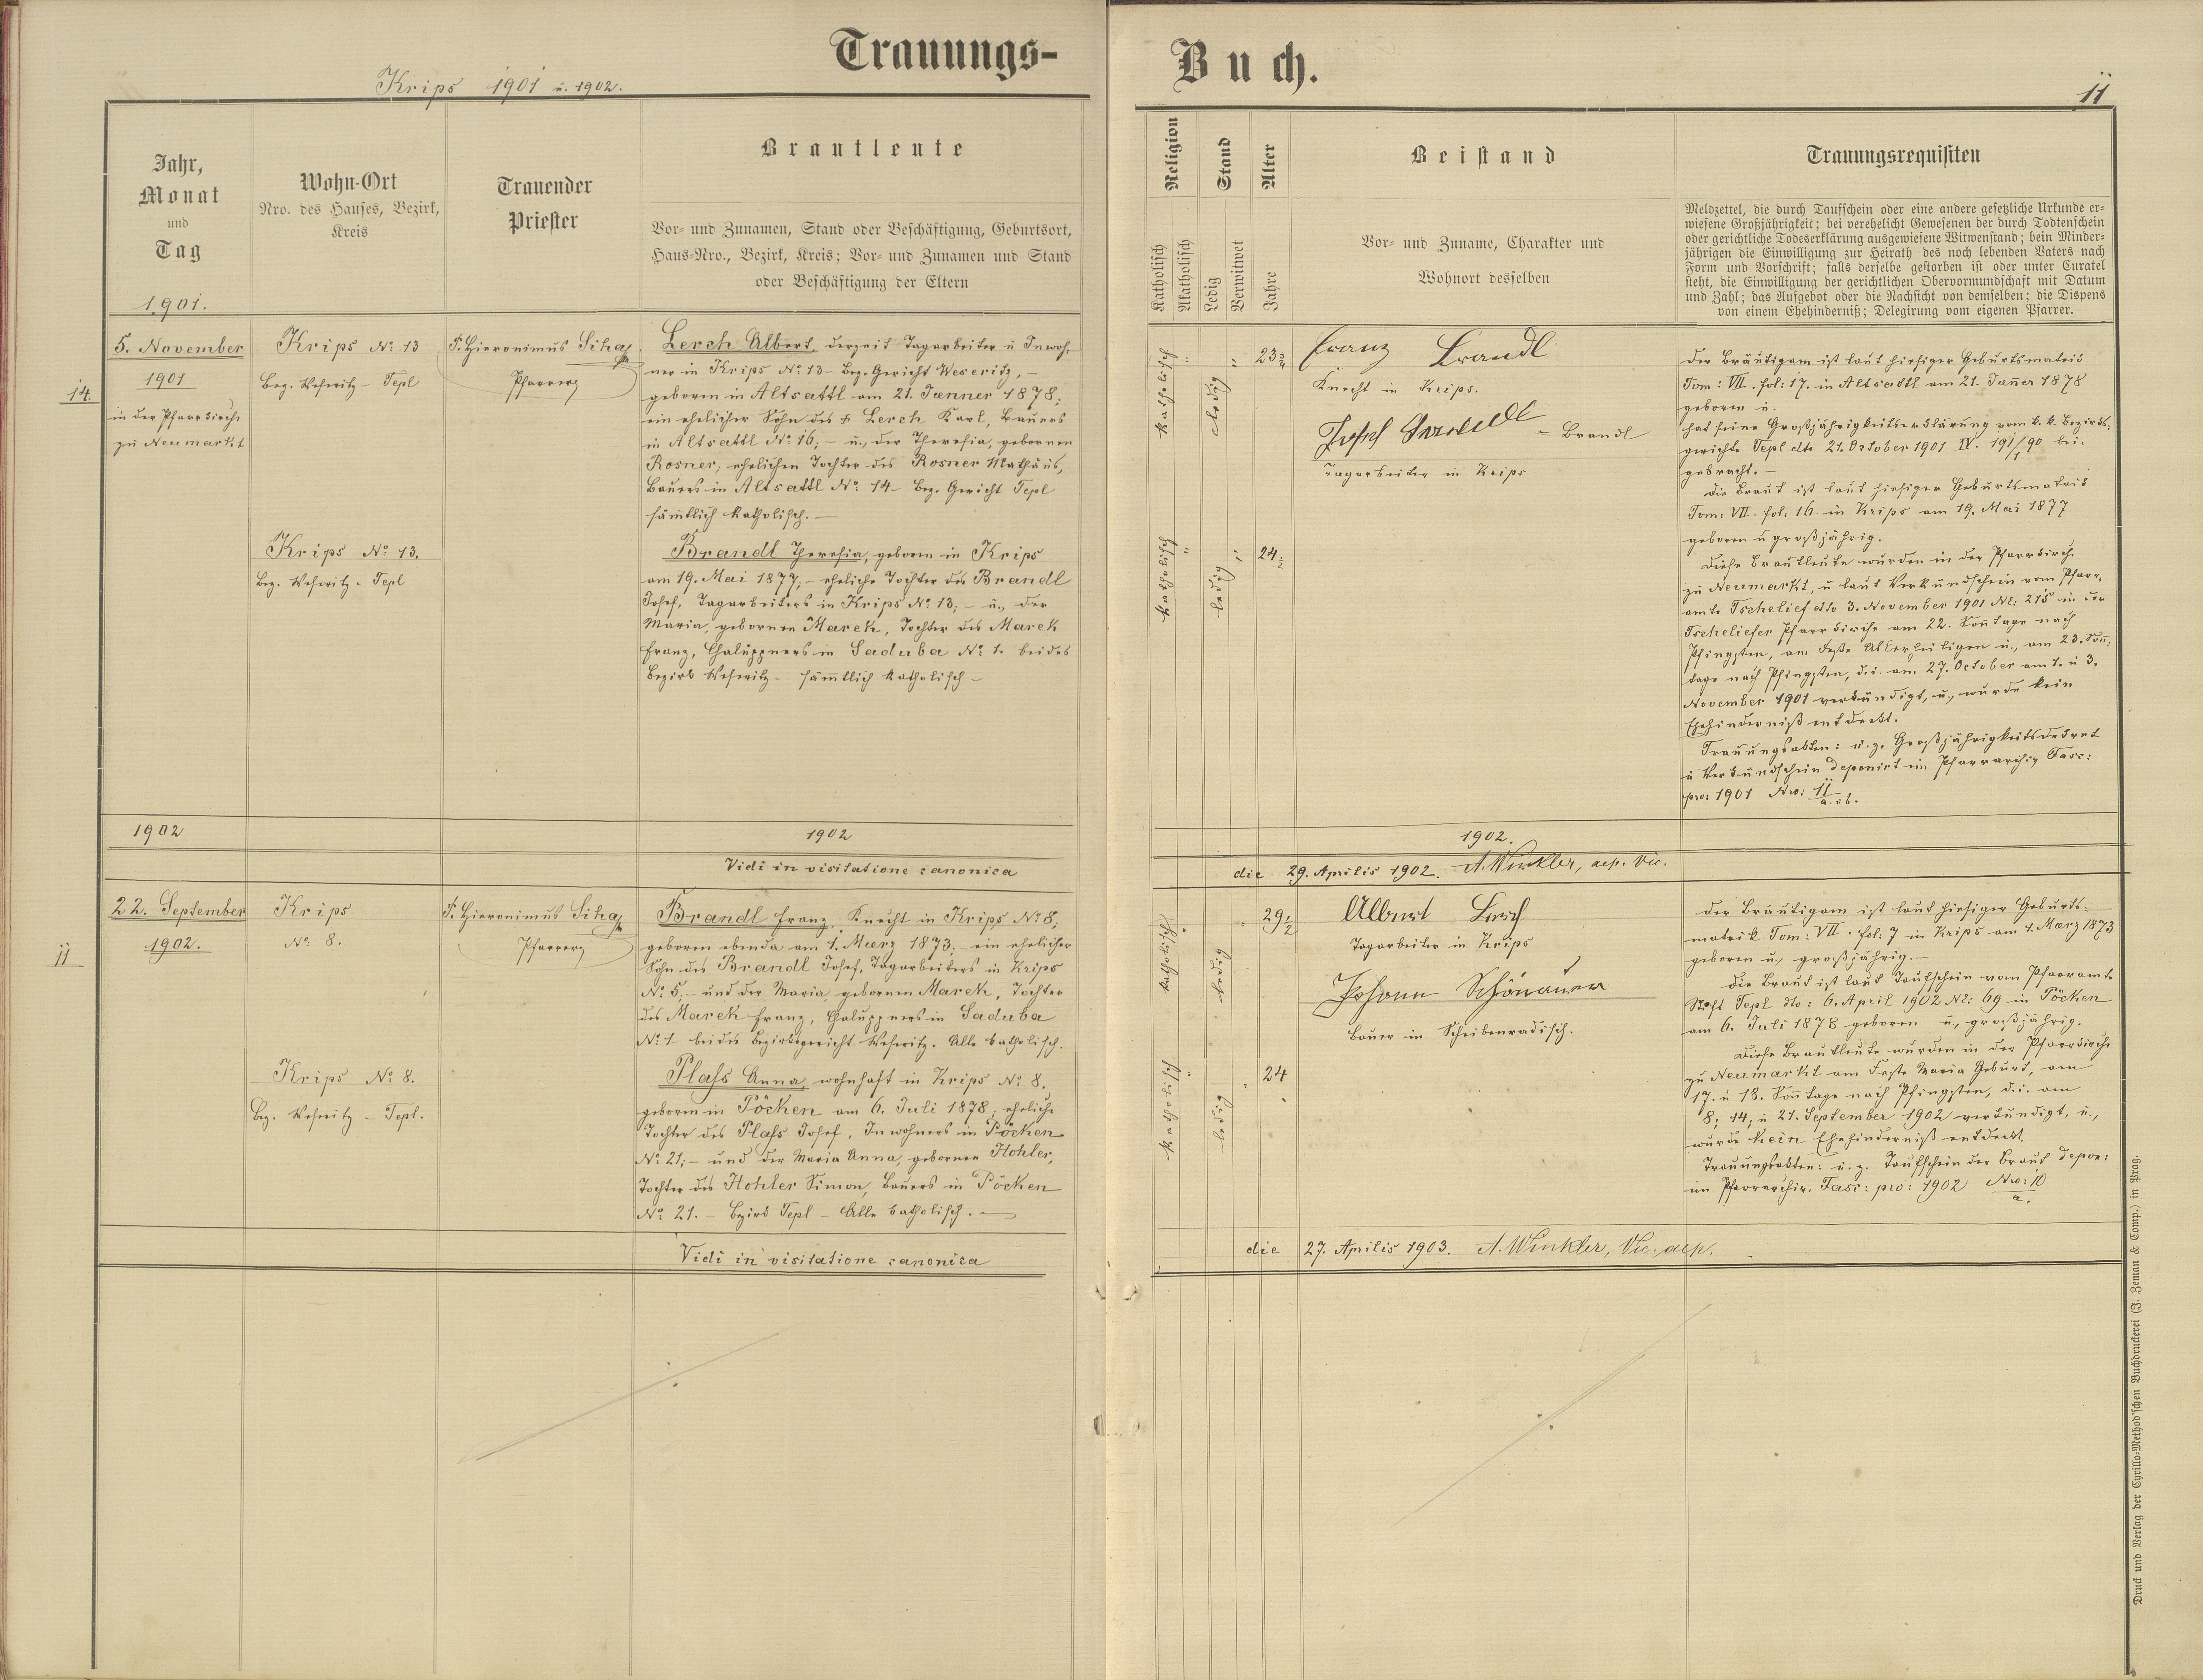 Trauungs-
Krips 1901 u. 1902.
Jahr,
Monat
und
Tag
1901.
Wohn-Ort
Nro. des Hauses, Bezirk,
Kreis
Trauender
Priester
Brautleute
Vor- und Zunamen, Stand oder Beschäftigung, Geburtsort,
Haus-Nro., Bezirk, Kreis; Vor- und Zunamen und Stand
oder Beschäftigung der Eltern
14.
5. November
1901
in der Pfarrkirche
zu Neumarkt
Krips No 13
Bez. Weseritz - Tepl
P. Hieronimus Siha
Pfarrer
Lerch Albert, derzeit Tagarbeiter u Inwoh-
ner in Krips No 13 - Bez. Gericht Weseritz, -
geboren in Altsattl am 21. Jänner 1878;
ein ehelicher Sohn des Lerch Karl, Bauers
in Altsattl No 16; - u., der Theresia, gebornen
Rosner; ehelichen Tochter des Rosner Mathäus,
Bauers in Altsattl No 14 - Bez. Gericht Tepl
sämtlich katholisch. -
Krips No 13.
Bez. Weseritz - Tepl
Brandl Theresia, geboren in Krips
am 19. Mai 1877; - eheliche Tochter des Brandl
Josef, Tagarbeiters in Krips No 13; - u., der
Maria, gebornen Marek, Tochter des Marek
Franz, Chaluppners in Saduba No 1. beides
Bezirk Weseritz - sämtlich katholisch -
1902
1902
Vidi in visitatione canonica
11
22. September
1902.
Krips
No 8.
P. Hieronimus Siha
Pfarrer
Brandl Franz, Knecht in Krips No 8;
geboren ebenda am 1. März 1873; - ein ehelicher
Sohn des Brandl Josef, Tagarbeiters in Krips
No 5; - und der Maria, gebornen Marek, Tochter
des Marek Franz, Chaluppners in Saduba
No 1 beides Bezirksgericht Weseritz. Alle katholisch.
Krips No 8.
Bez. Weseritz - Tepl.
Plass Anna, wohnhaft in Krips No 8.
geboren in Pöcken am 6. Juli 1878; eheliche
Tochter des Plass Josef, Inwohners in Pöcken
No 21; - und der Maria Anna, gebornen Hohler,
Tochter des Hohler Simon, Bauers in Pöcken
No 21. - Bezirk Tepl - Alle katholisch. -
Vidi in visitatione canonica
Buch.
11
Religion
Katholisch
Akatholisch
Stand
Ledig
Verwitwet
Alter
Jahre
Beistand
Vor- und Zuname, Charakter und
Wohnort desselben
Trauungsrequisiten
Meldzettel, die durch Taufschein oder eine andere gesetzliche Urkunde er-
wiesene Großjährigkeit; bei verehelicht Gewesenen der durch Todtenschein
oder gerichtliche Todeserklärung ausgewiesene Witwenstand; bein Minder-
jährigen die Einwilligung zur Heirath des noch lebenden Vaters nach
Form und Vorschrift; falls derselbe gestorben ist oder unter Curatel
steht, die Einwilligung der gerichtlichen Obervormundschaft mit Datum
und Zahl; das Aufgebot oder die Nachsicht von demselben; die Dispens
von einem Ehehinderniß; Delegirung vom eigenen Pfarrer.
Katholisch "
ledig "
23
Franz Brandl
Knecht in Krips.
Josef Brandl = Brandl
Tagarbeiter in Krips
Der Bräutigam ist laut hiesiger Geburtsmatrik
Tom: VII. fol: 17. in Altsattl am 21. Jäner 1878
geboren u.
hat seine Großjährigkeitserklärung vom k. k. Bezirks-
gerichte Tepl dto 21. October 1901 IV. 191/90 bei-
1
gebracht. -
Die Braut ist laut hiesiger Geburtsmatrik
Tom: VII. fol: 16. in Krips am 19. Mai 1877
geboren u großjährig.
Katholisch "
ledig "
24
Diese Brautleute wurden in der Pfarrkirche
zu Neumarkt, u laut Verkundschein vom Pfarr-
amte Tschelief dto 3. November 1901 No: 215 in der
Tscheliefer Pfarrkirche am 22. Sonntage nach
Pfingsten, am Feste Allerheiligen u., am 23. Son-
tage nach Pfingsten, d.i. am 27. October am 1. u 3.
November 1901 verkündigt, u., wurde kein
Ehehinderniß entdeckt.
Trauungsakten: u. z. Großjährigkeitsdekret
u Verkundschein deponirt im Pfarrarchiv Fasc:
pro: 1901 Nro: 11
a. ub.
1902.
die 29. Aprilis 1902. A. Winkler, aep. vic.
Katholisch
ledig
29 1/2
Albert Lerch
Tagarbeiter in Krips
Johann Schönauer
Bauer in Scheibenradisch.
Der Bräutigam ist laut hiesiger Geburts-
matrik Tom: VII. fol: 7 in Krips am 1. März 1873
geboren u., großjährig. -
Die Braut ist laut Taufschein vom Pfarramte
Stift Tepl dto: 6. April 1902 No: 69 in Pöcken
am 6. Juli 1878 geboren u., großjährig.
Katholisch "
ledig
24
Diese Brautleute wurden in der Pfarrkirche
zu Neumarkt am Feste Maria Geburt, am
17. u 18. Sontage nach Pfingsten, d.i. am
8; 14; u 21. September 1902 verkündigt, u.,
wurde kein Ehehinderniß entdeckt.
Trauungsakten: u. z. Taufschein der Braut depon:
im Pfarrarchiv. Fasc: pro: 1902 Nro: 10
a.
die 27. Aprilis 1903. A. Winkler, Vic. aep.
Druck und Verlag der Cyrillo-Method'schen Buchdruckerei (J. Zeman & Comp.) in Prag.